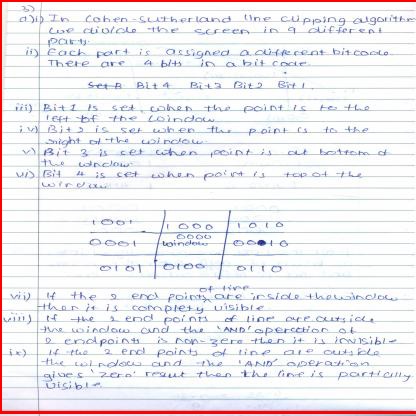 3)
a)i) In Cohen-Sutherland line clipping algorithm
we divide the screen in 9 different
part.
ii) Each part is assigned a different bitcode.
There are 4 bits in a bit code.
Bit 4 Bit 3 Bit 2 Bit 1.
iii) Bit 1 is set when the point is to the
left of the window
iv) Bit 2 is set when the point is to the
right of the window
v) Bit 3 is set when point is at bottom of
the window
vi) Bit 4 is set when point is top of the
window
1001 1000 1010
0000
0001 window 0010
0101 0100 0110
of line
vii) If the 2 end points are inside the window
then it is completly visible
viii) If the 2 end points of line are outside
the window and the 'AND' operation of
2 endpoints is non-zero then it is invisible
ix) If the 2 end points of line are outside
the window and the 'AND' operation
gives 'zero' result then the line is partically
visible.